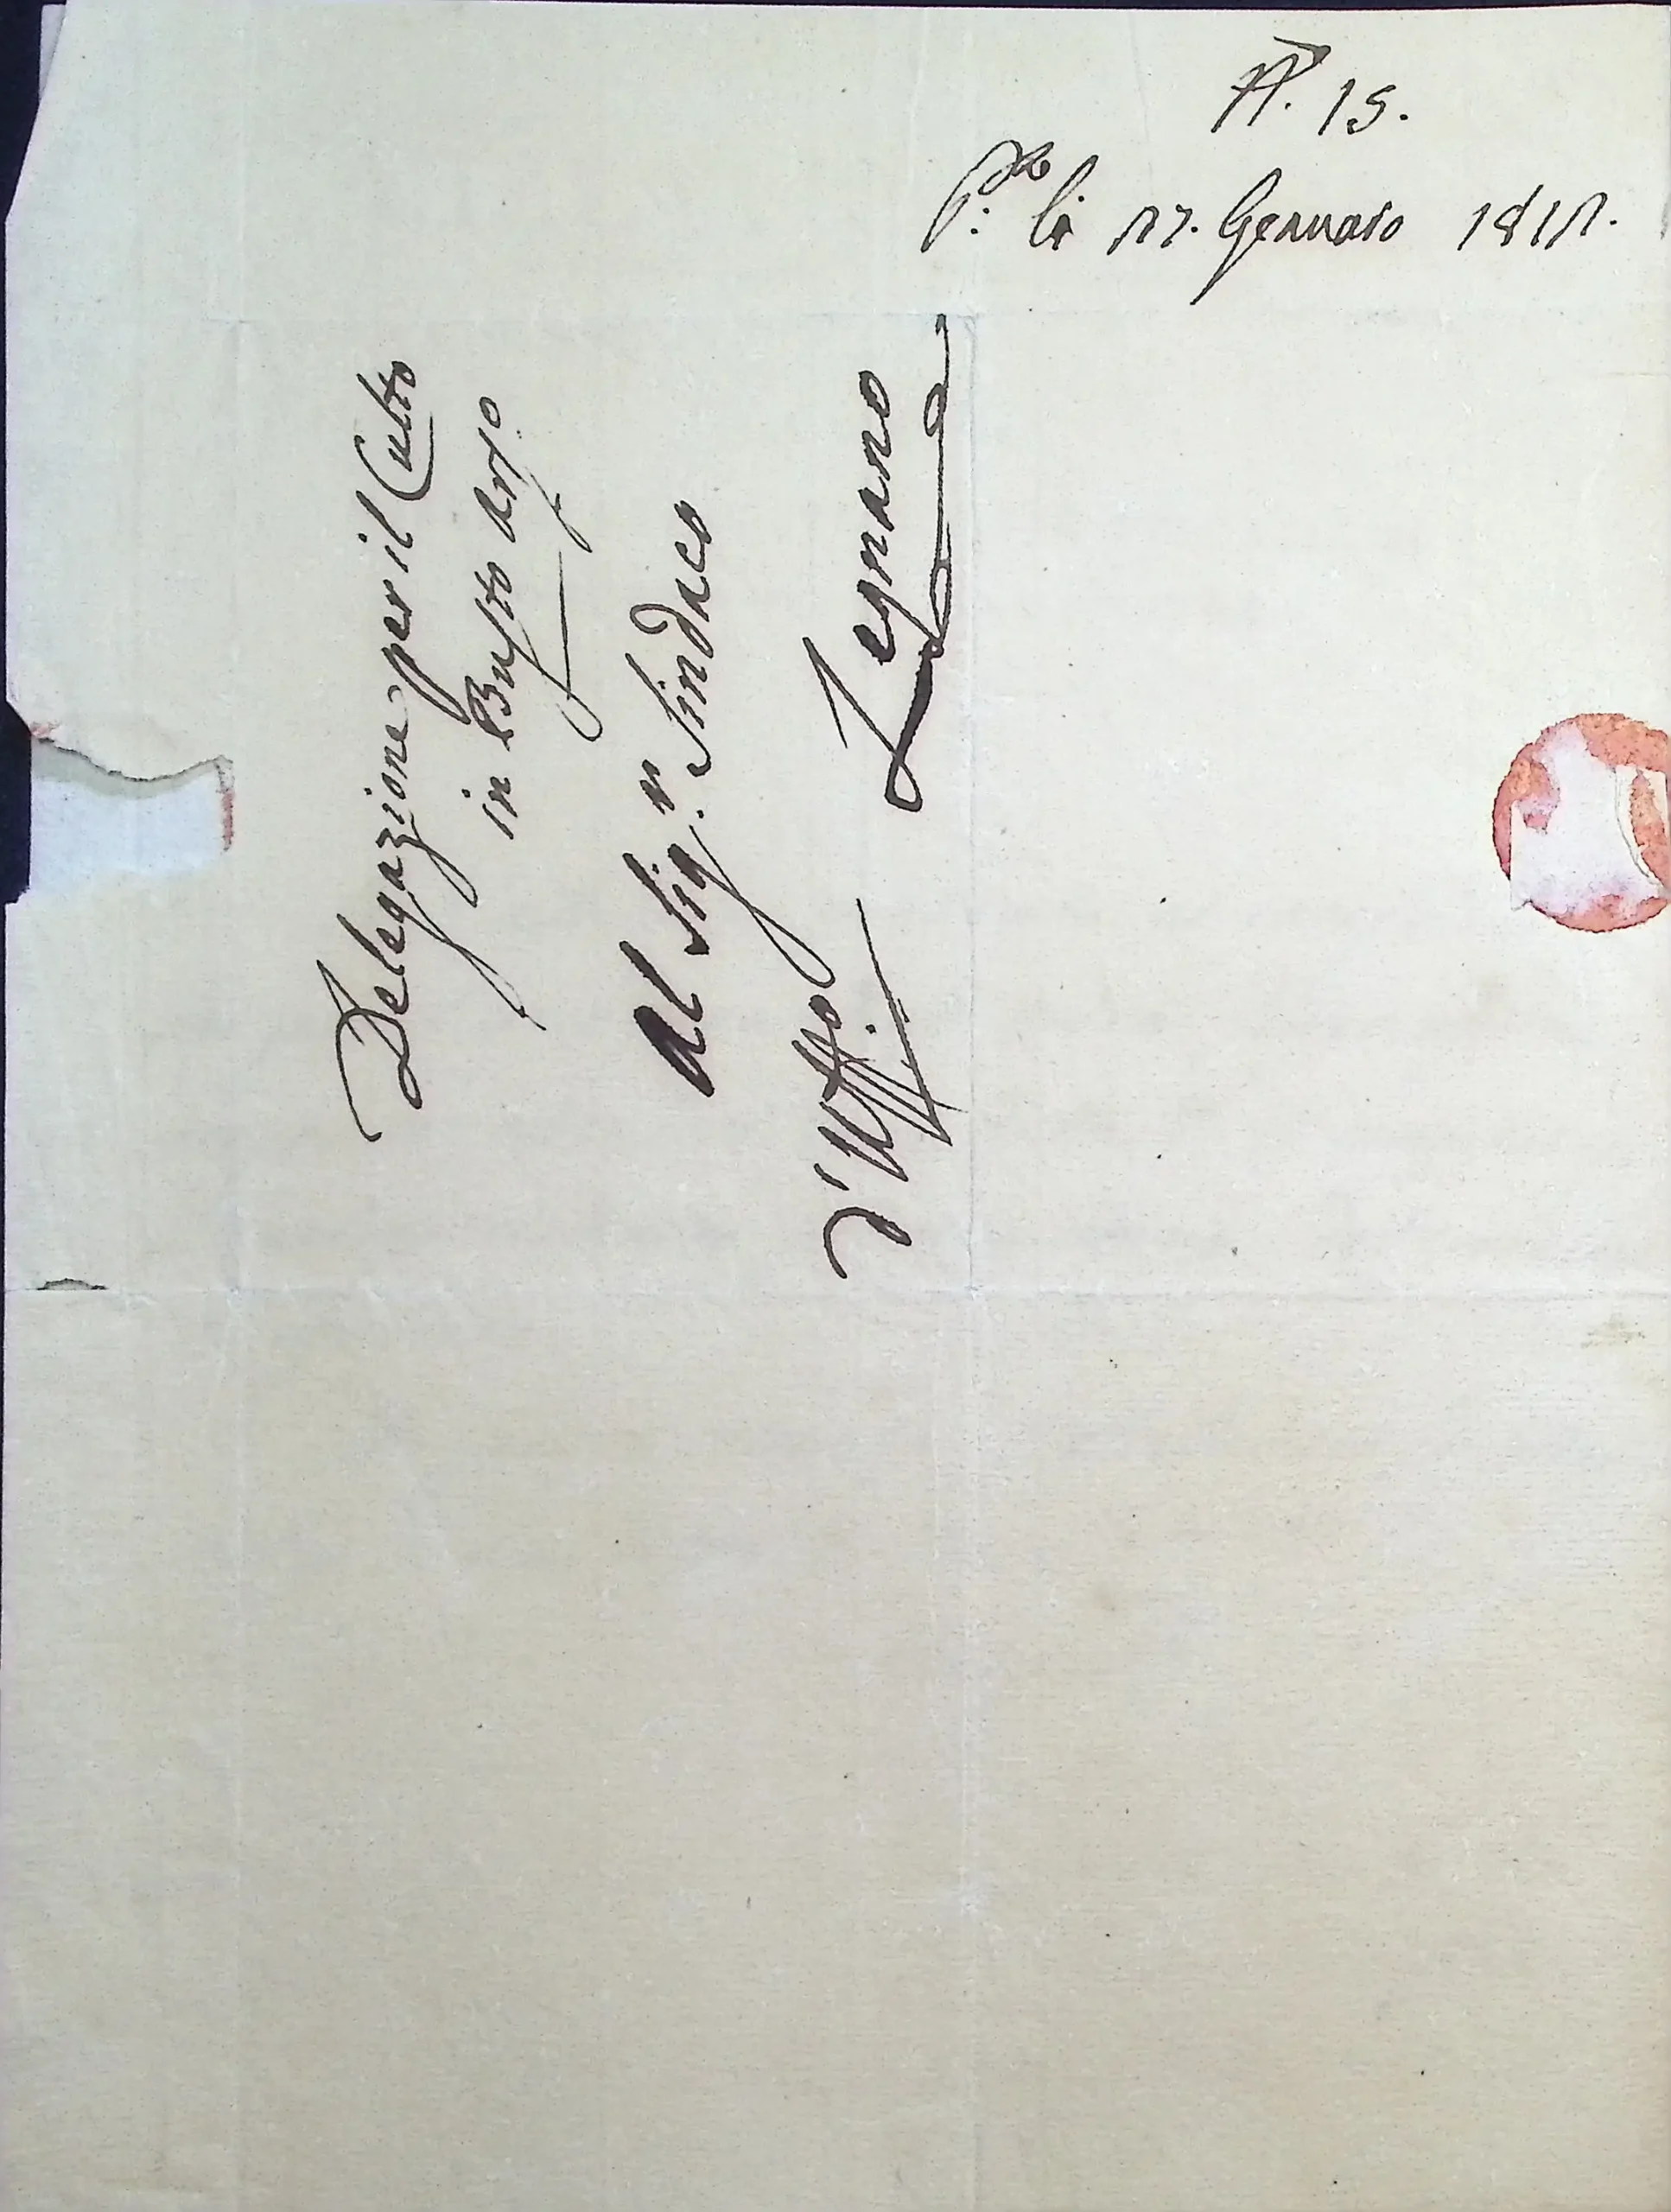 N.º 15.
P.to li 27. Gennaio 1812.
Delegazione per il Culto
in Busto Ars.o
Al Sig.r Sindaco
d'Uff.o Legnano